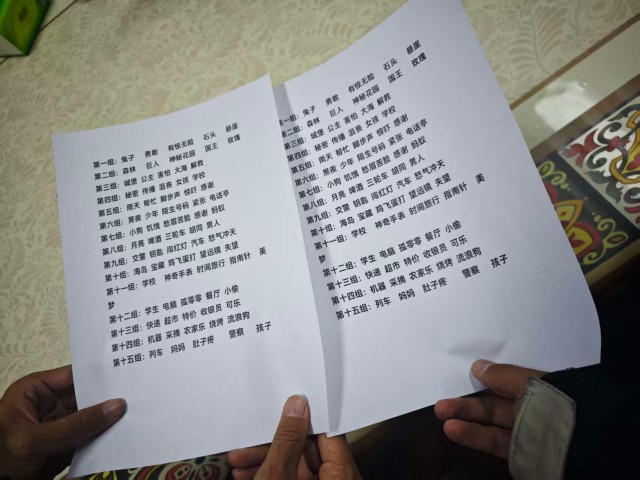 第一组：兔子 勇敢 有惊无险 石头 悬崖
第二组：森林 巨人 神秘花园 国王 玫瑰
第三组：城堡 公主 害怕 大海 解救
第四组：秘密 传播 沮丧 女孩 学校
第五组：雨天 帮忙 脚步声 惊吓 感谢
第六组：黑夜 少年 陌生号码 紧张 电话亭
第七组：小狗 饥饿 愁眉苦脸 感谢 蚂蚁
第八组：月亮 啤酒 三轮车 胡同 男人
第九组：交警 钥匙 闯红灯 汽车 怒气冲天
第十组：海岛 宝藏 鸡飞蛋打 望远镜 失望
第十一组：学校 神奇手表 时间旅行 指南针 美
梦
第十二组：学生 电脑 孤零零 餐厅 小偷
第十三组：快递 超市 特价 收银员 可乐
第十四组：机器 采摘 农家乐 烧烤 流浪狗
第十五组：列车 妈妈 肚子疼 警察 孩子
第一组：兔子 勇敢 有惊无险 石头 悬崖
第二组：森林 巨人 神秘花园 国王 玫瑰
第三组：城堡 公主 害怕 大海 解救
第四组：秘密 传播 沮丧 女孩 学校
第五组：雨天 帮忙 脚步声 惊吓 感谢
第六组：黑夜 少年 陌生号码 紧张 电话亭
第七组：小狗 饥饿 愁眉苦脸 感谢 蚂蚁
第八组：月亮 啤酒 三轮车 胡同 男人
第九组：交警 钥匙 闯红灯 汽车 怒气冲天
第十组：海岛 宝藏 鸡飞蛋打 望远镜 失望
第十一组：学校 神奇手表 时间旅行 指南针 美
梦
第十二组：学生 电脑 孤零零 餐厅 小偷
第十三组：快递 超市 特价 收银员 可乐
第十四组：机器 采摘 农家乐 烧烤 流浪狗
第十五组：列车 妈妈 肚子疼 警察 孩子